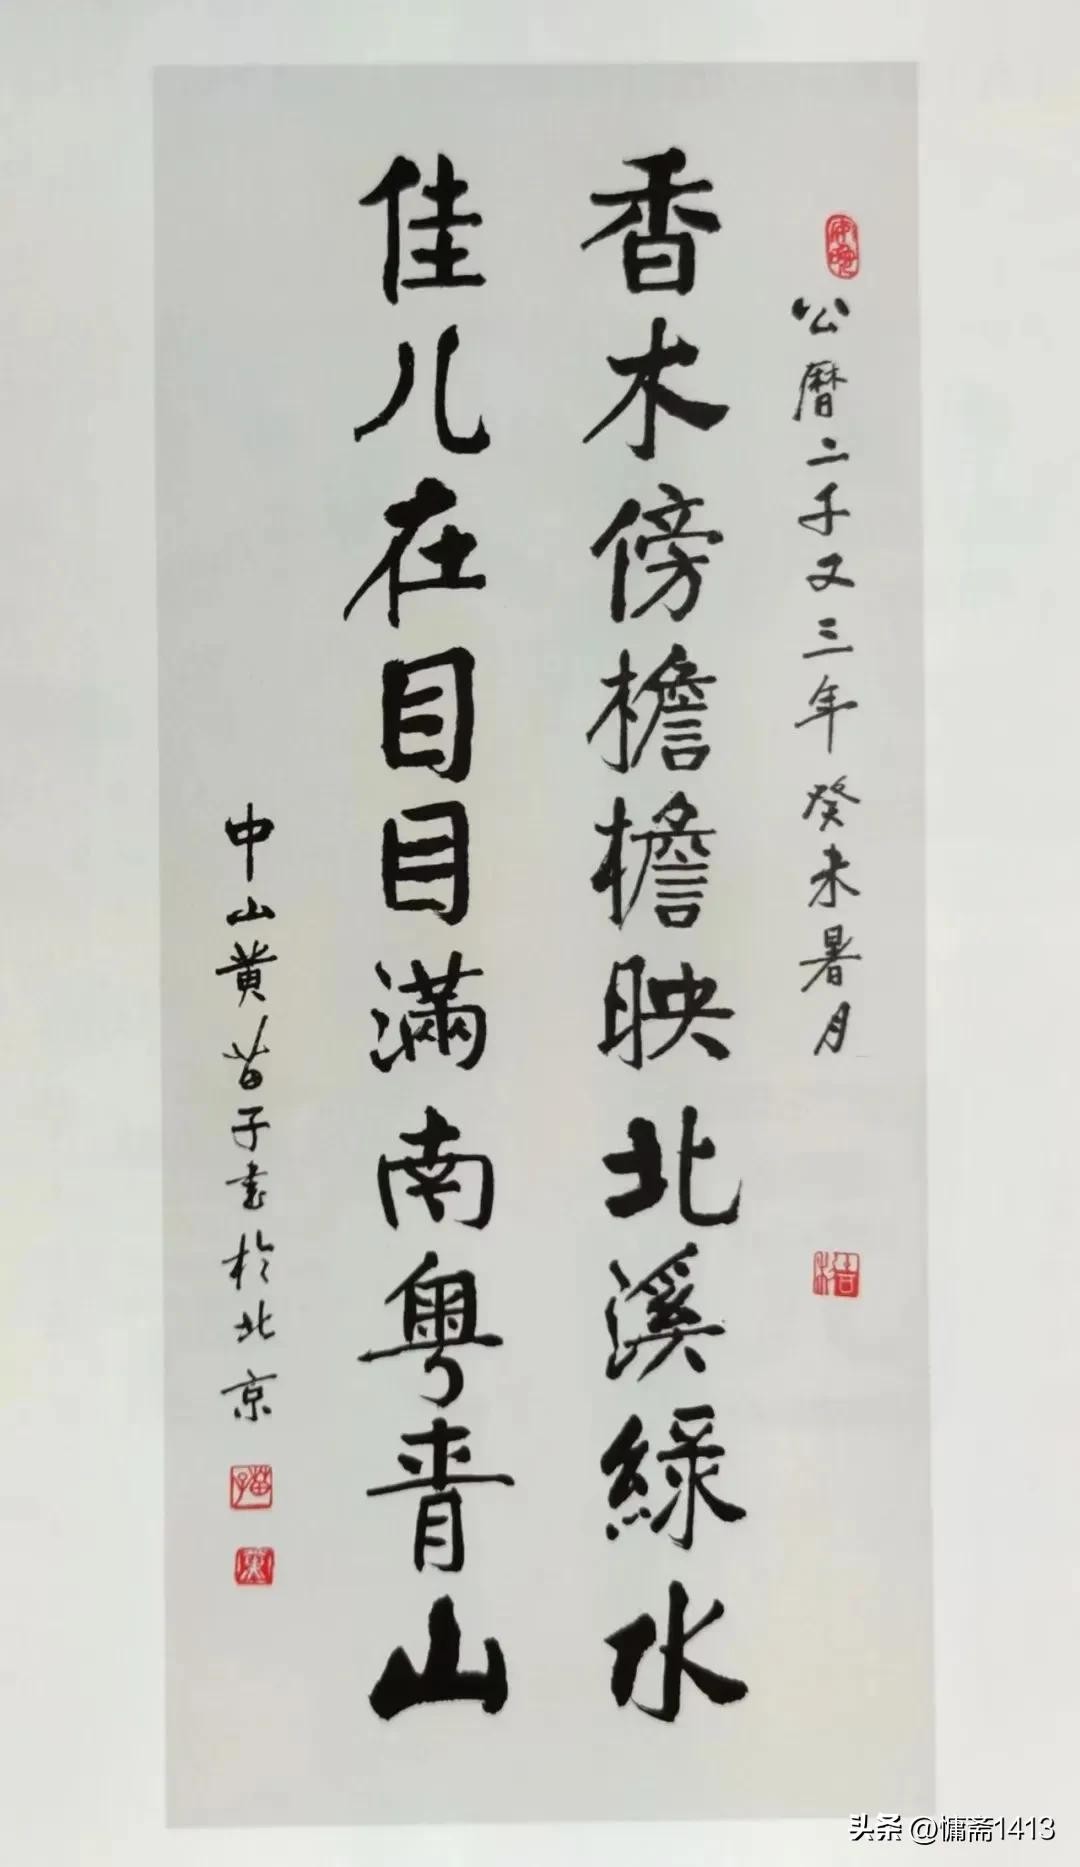 公曆二千又三年癸未暑月
香木傍檐檐映北溪綠水
佳儿在目目滿南粤青山
中山黄苗子书於北京
苗子
头条 @慵斋1413